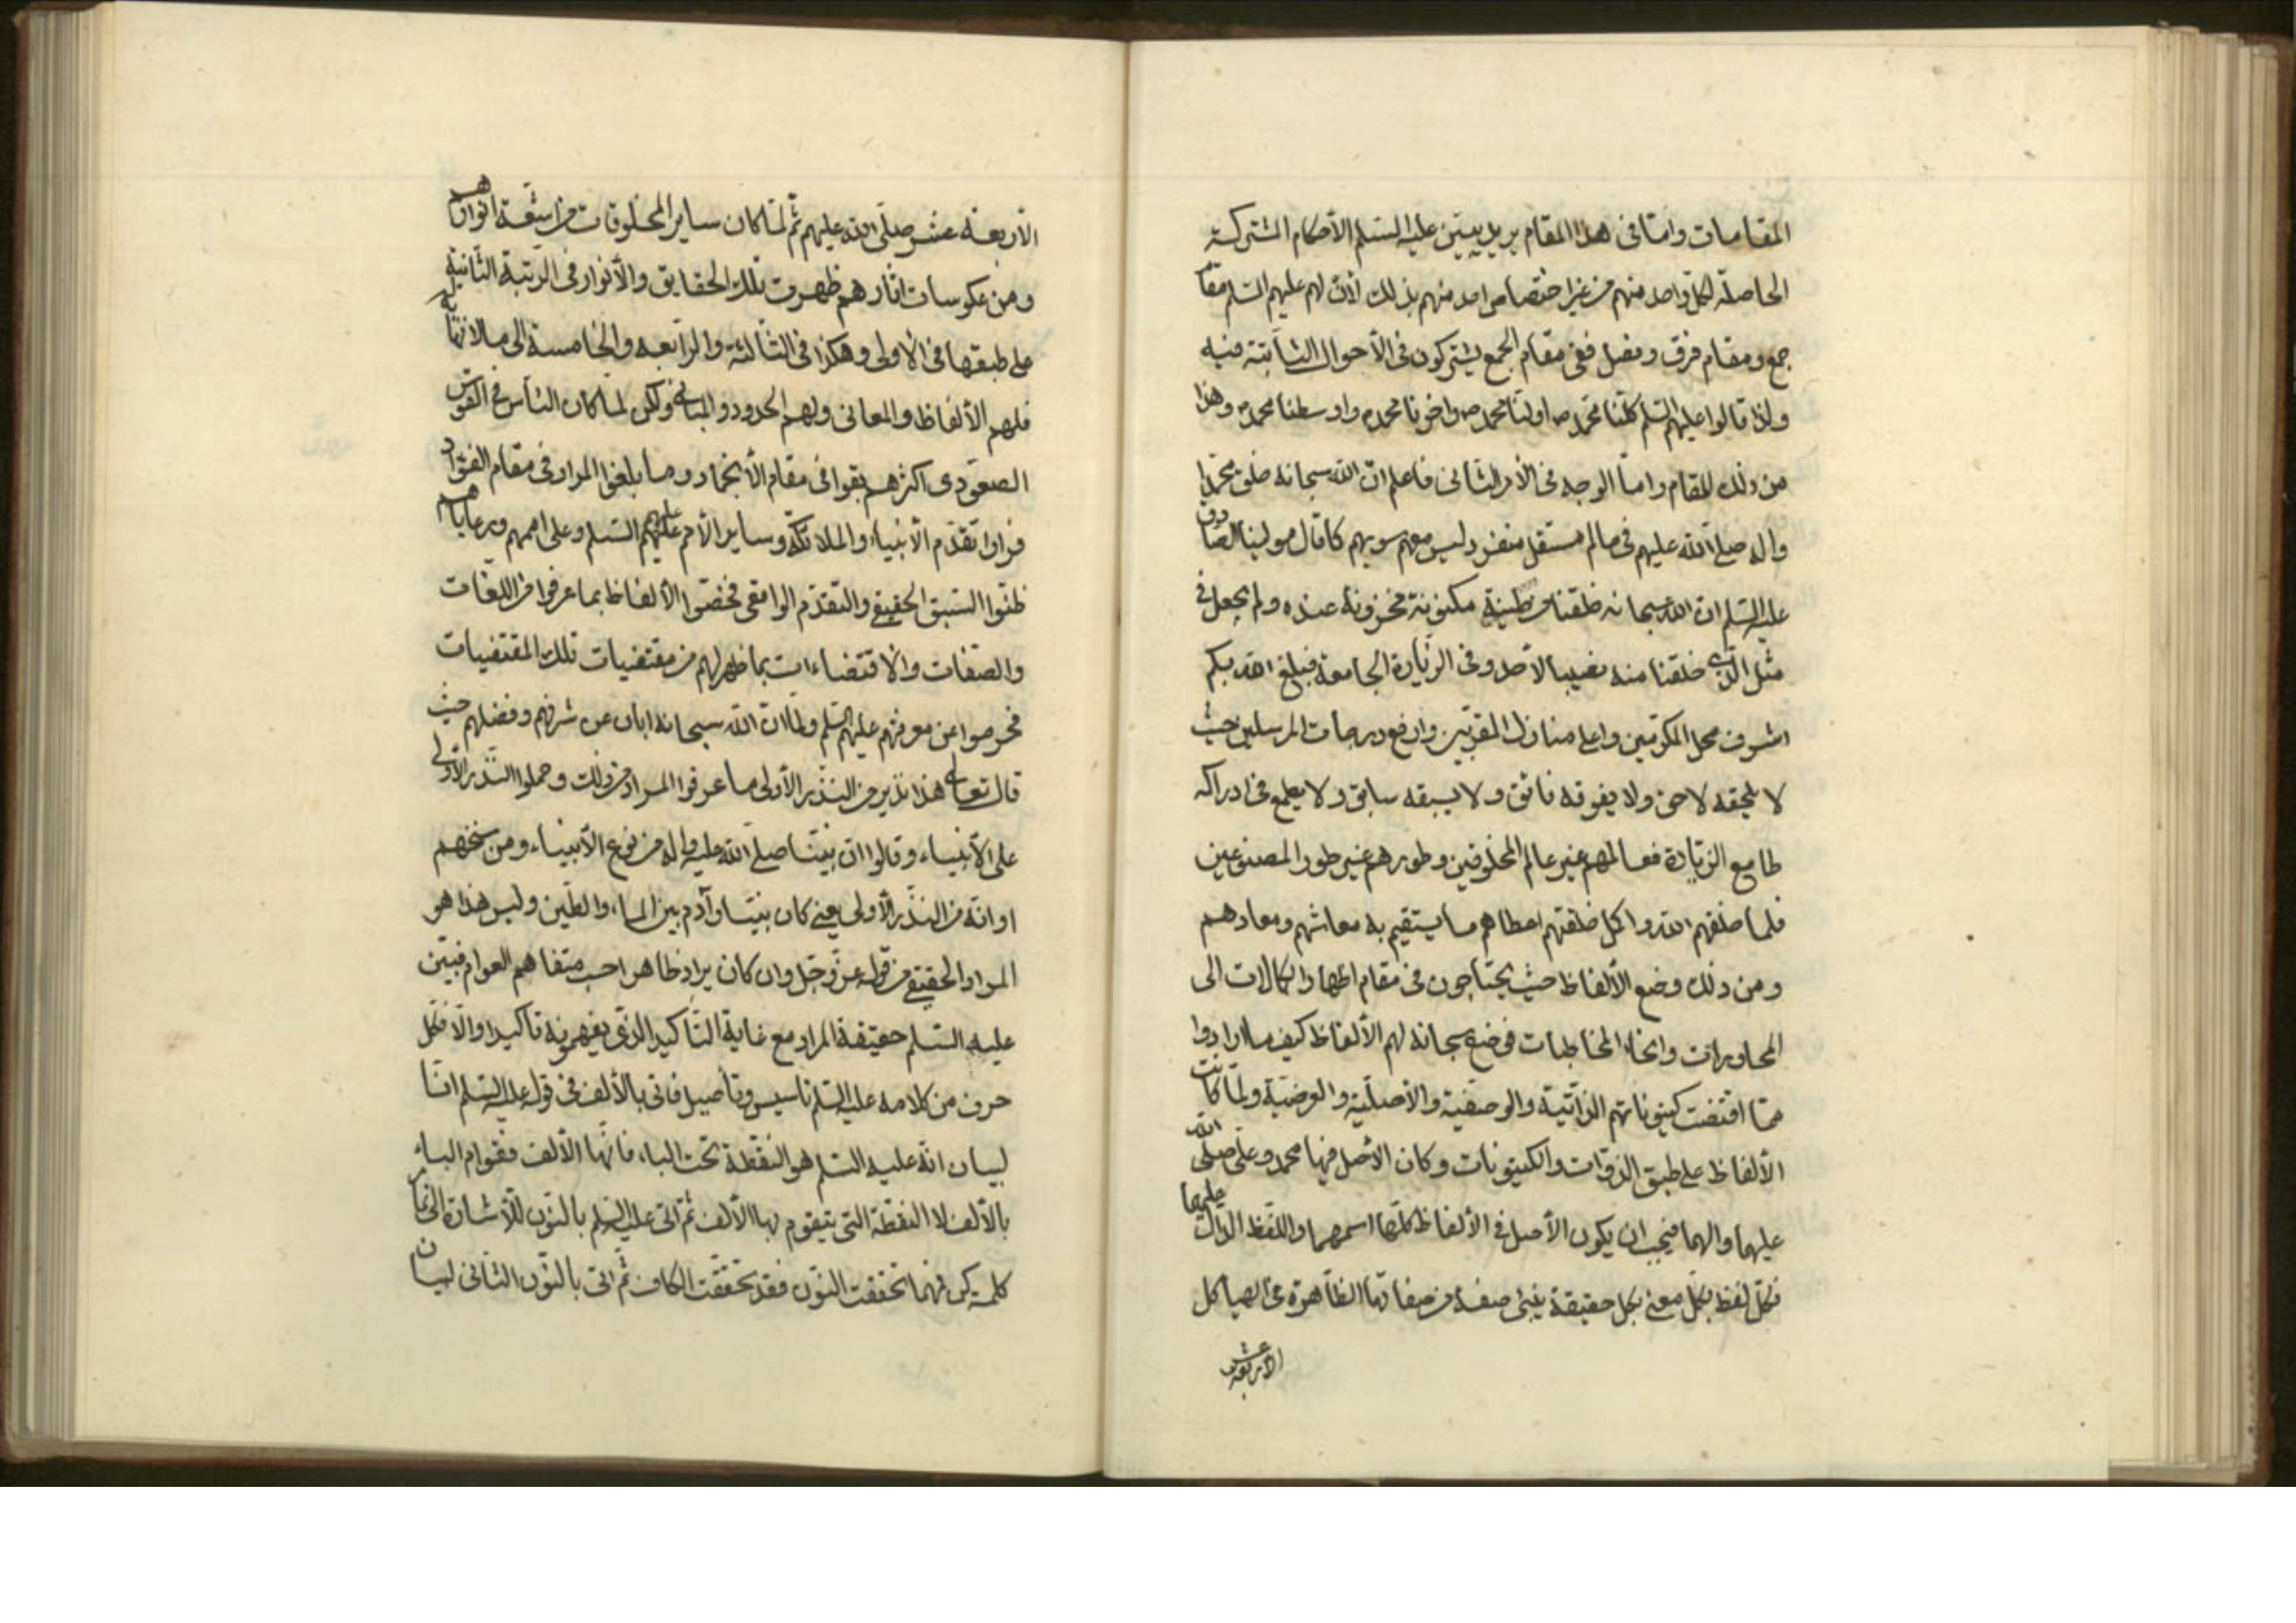 المقامات وامّا فى هذا المقام يريد يبيّن عليه السّلم الأحكام المشتركة
الحاصلة لكلّ واحد منهم من غير اختصاص احد منهم بذلك لأنّ لهم عليهم السّلم مقام
جمع ومقام فرق وفصل ففى مقام الجمع يشتركون فى الأحوال الثّابتة فيه
ولذا قالوا عليهم السّلم كلّنا محمّد ص اولنا محمد ص واخرنا محمد ص واوسطنا محمد ص وهذا
من ذلك المقام وامّا الوجه فى الأمر الثّانى فاعلم انّ الله سبحانه خلق محمّدا
واله صلّى الله عليهم فى عالم مستقلّ منفرد ليس معهم سويهم كما قال مولينا الصّادق
عليه السّلم ان الله سبحانه خلقنا من طينة مكنونة مخزونة عنده ولم يجعل فى
مثل الّذى خلقنا منه نصيبا لأحد وفى الزّيارة الجامعة فبلغ الله بكم
اشرف محل المكرّمين واعلى منازل المقرّبين وارفع درجات المرسلين حيث
لا يلحقه لاحق ولا يفوقه فائق ولا يسبقه سابق ولا يطمع فى ادراكه
طامع الزّيارة فعالمهم غير عالم المخلوقين وطورهم غير طور المصنوعين
فلما خلقهم الله واكمل خلقتهم اعطاهم ما يستقيم به معاشهم ومعادهم
ومن ذلك وضع الألفاظ حيث يحتاجون فى مقام اظهار الكمالات الى
المحاورات وانحاء المخاطبات فوضع سبحانه لهم الألفاظ كيف ما ارادوا
ممّا اقتضت كينوناتهم الذّاتيّة والوصفيّة والأصليّة والعرضيّة ولمّا كانت
الألفاظ على طبق الذّوات والكينونات وكان الأصل فيها محمد وعلى صلّى الله
عليهما والهما فيجب ان يكون الأصل فى الألفاظ كلّها اسمهما واللّفظ الدّال عليهما
فكلّ لفظ بكلّ معنى بكل حقيقة ينبئ صفة من صفاتها الظّاهرة فى الهياكل
الأربعة عشر
الأربعة عشر صلّى الله عليهم ثمّ لمّا كان ساير المخلوقات من اشعّة انوارهم
ومن عكوسات اثارهم ظهرت تلك الحقايق والأنوار فى الرّتبة الثّانية
على طبقها فى الأولى وهكذا فى الثّالثة والرّابعه والخامسة الى ما لا نهاية له
فلهم الألفاظ والمعانى ولهم الحدود والمبانى ولكن لما كان النّاس فى القوس
الصعّودى اكثرهم بقوا فى مقام الأنجماد وما بلغوا المراد فى مقام الفؤاد
فراوا تقدّم الأنبياء والملائكة وساير الأمم عليهم السّلم وعلى اممهم ورعاياهم
ظنّوا السّبق الحقيقى والتقدّم الواقعى فخصّوا الألفاظ بما عرفوا من اللّغات
والصّفات والأقتضاءات بما ظهر لهم من مقتضيات تلك المقتضيات
فحرموا عن معرفتهم عليهم السّلم ولمّا انّ الله سبحانه ابان عن شرفهم وفضلهم حيث
قال تعالى هذا نذير من النّذر الأولى ما عرفوا المراد من ذلك وحملوا النّذر الأولى
على الأنبياء وقالوا ان نبيّنا صلّى الله عليه واله من نوع الأنبياء ومن سنخهم
او انّه من النّذر الأولى يعنى كان نبيّنا وآدم بين الماء والطّين وليس هذا هو
المراد الحقيقى من قوله عزّ وجلّ وان كان يراد ظاهرا حسب متفاهم العوام فبيّن
عليه السّلم حقيقة المراد مع غاية التّأكيد الذّى يفهمونه تأكيدا والّا فكل
حرف من كلامه عليه السّلم تاسيس وتأصيل فاتى بالألف فى قوله عليه السّلم انا
لبيان انّه عليه السّلم هو النقطة تحت الباء فانّها الألف فقوام الباء
بالألف لا النقطة التى يتقوم بها الألف ثمّ اتى عليه السّلم بالنّون للأشارة الى تمام
كلمة كن فهما تحققت النّون فقد تحقّقت الكاف ثمّ اتى بالنّون الثّانى لبيان